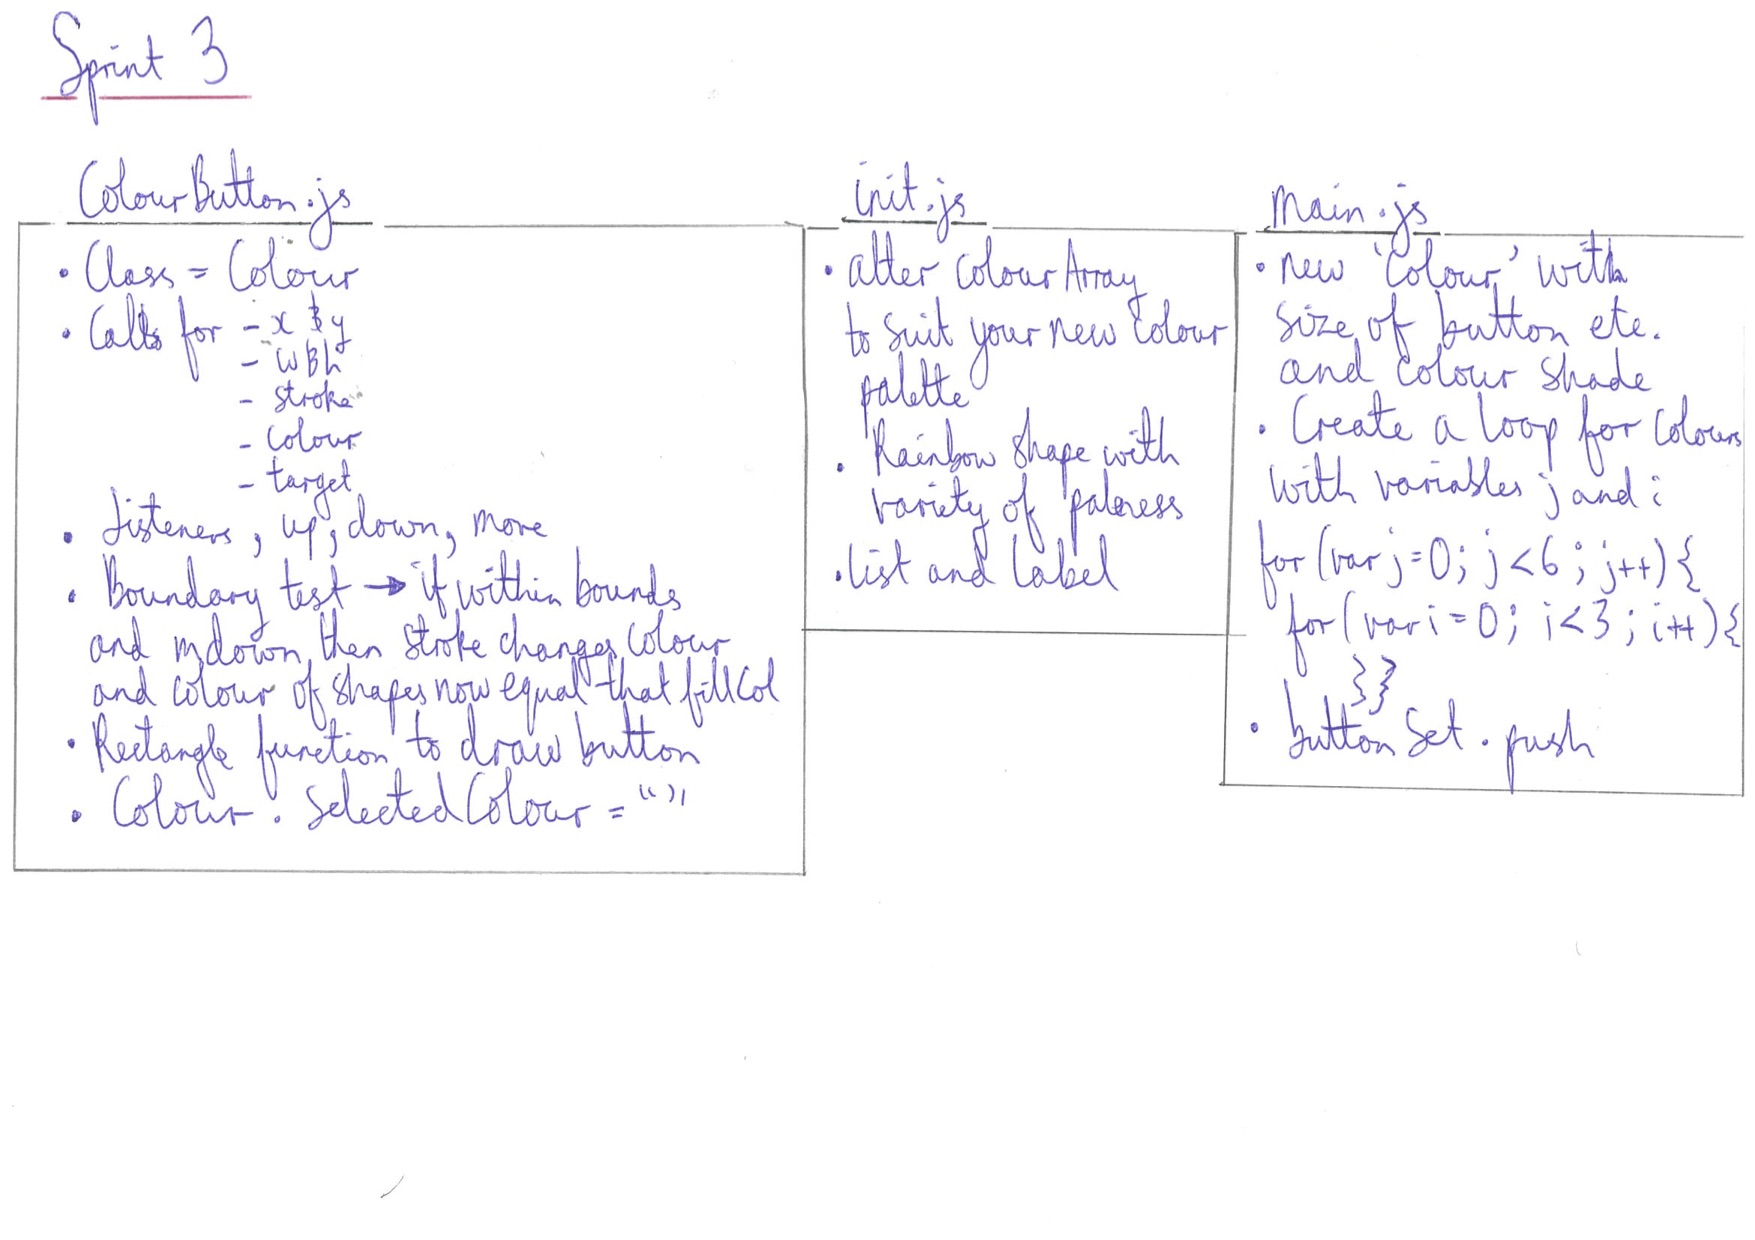 Sprint 3
ColourButton.js
• Class = Colour
• Calls for - x & y
- w & h
- stroke
- colour
- target
• Listeners, up, down, move
• Boundary test → if within bounds
and mdown, then stroke changes colour
and colour of shapes now equal that fillCol
• Rectangle function to draw button
• Colour . SelectedColour = “”
init.js
• alter colourArray
to suit your new colour
palette
• Rainbow shape with
variety of paleness
• list and label
main.js
• new 'colour' with
size of button etc.
and colour shade
• Create a loop for colours
with variables j and i
for (var j=0; j<6; j++) {
for (var i=0; i<3; i++) {
}}
• button Set . push